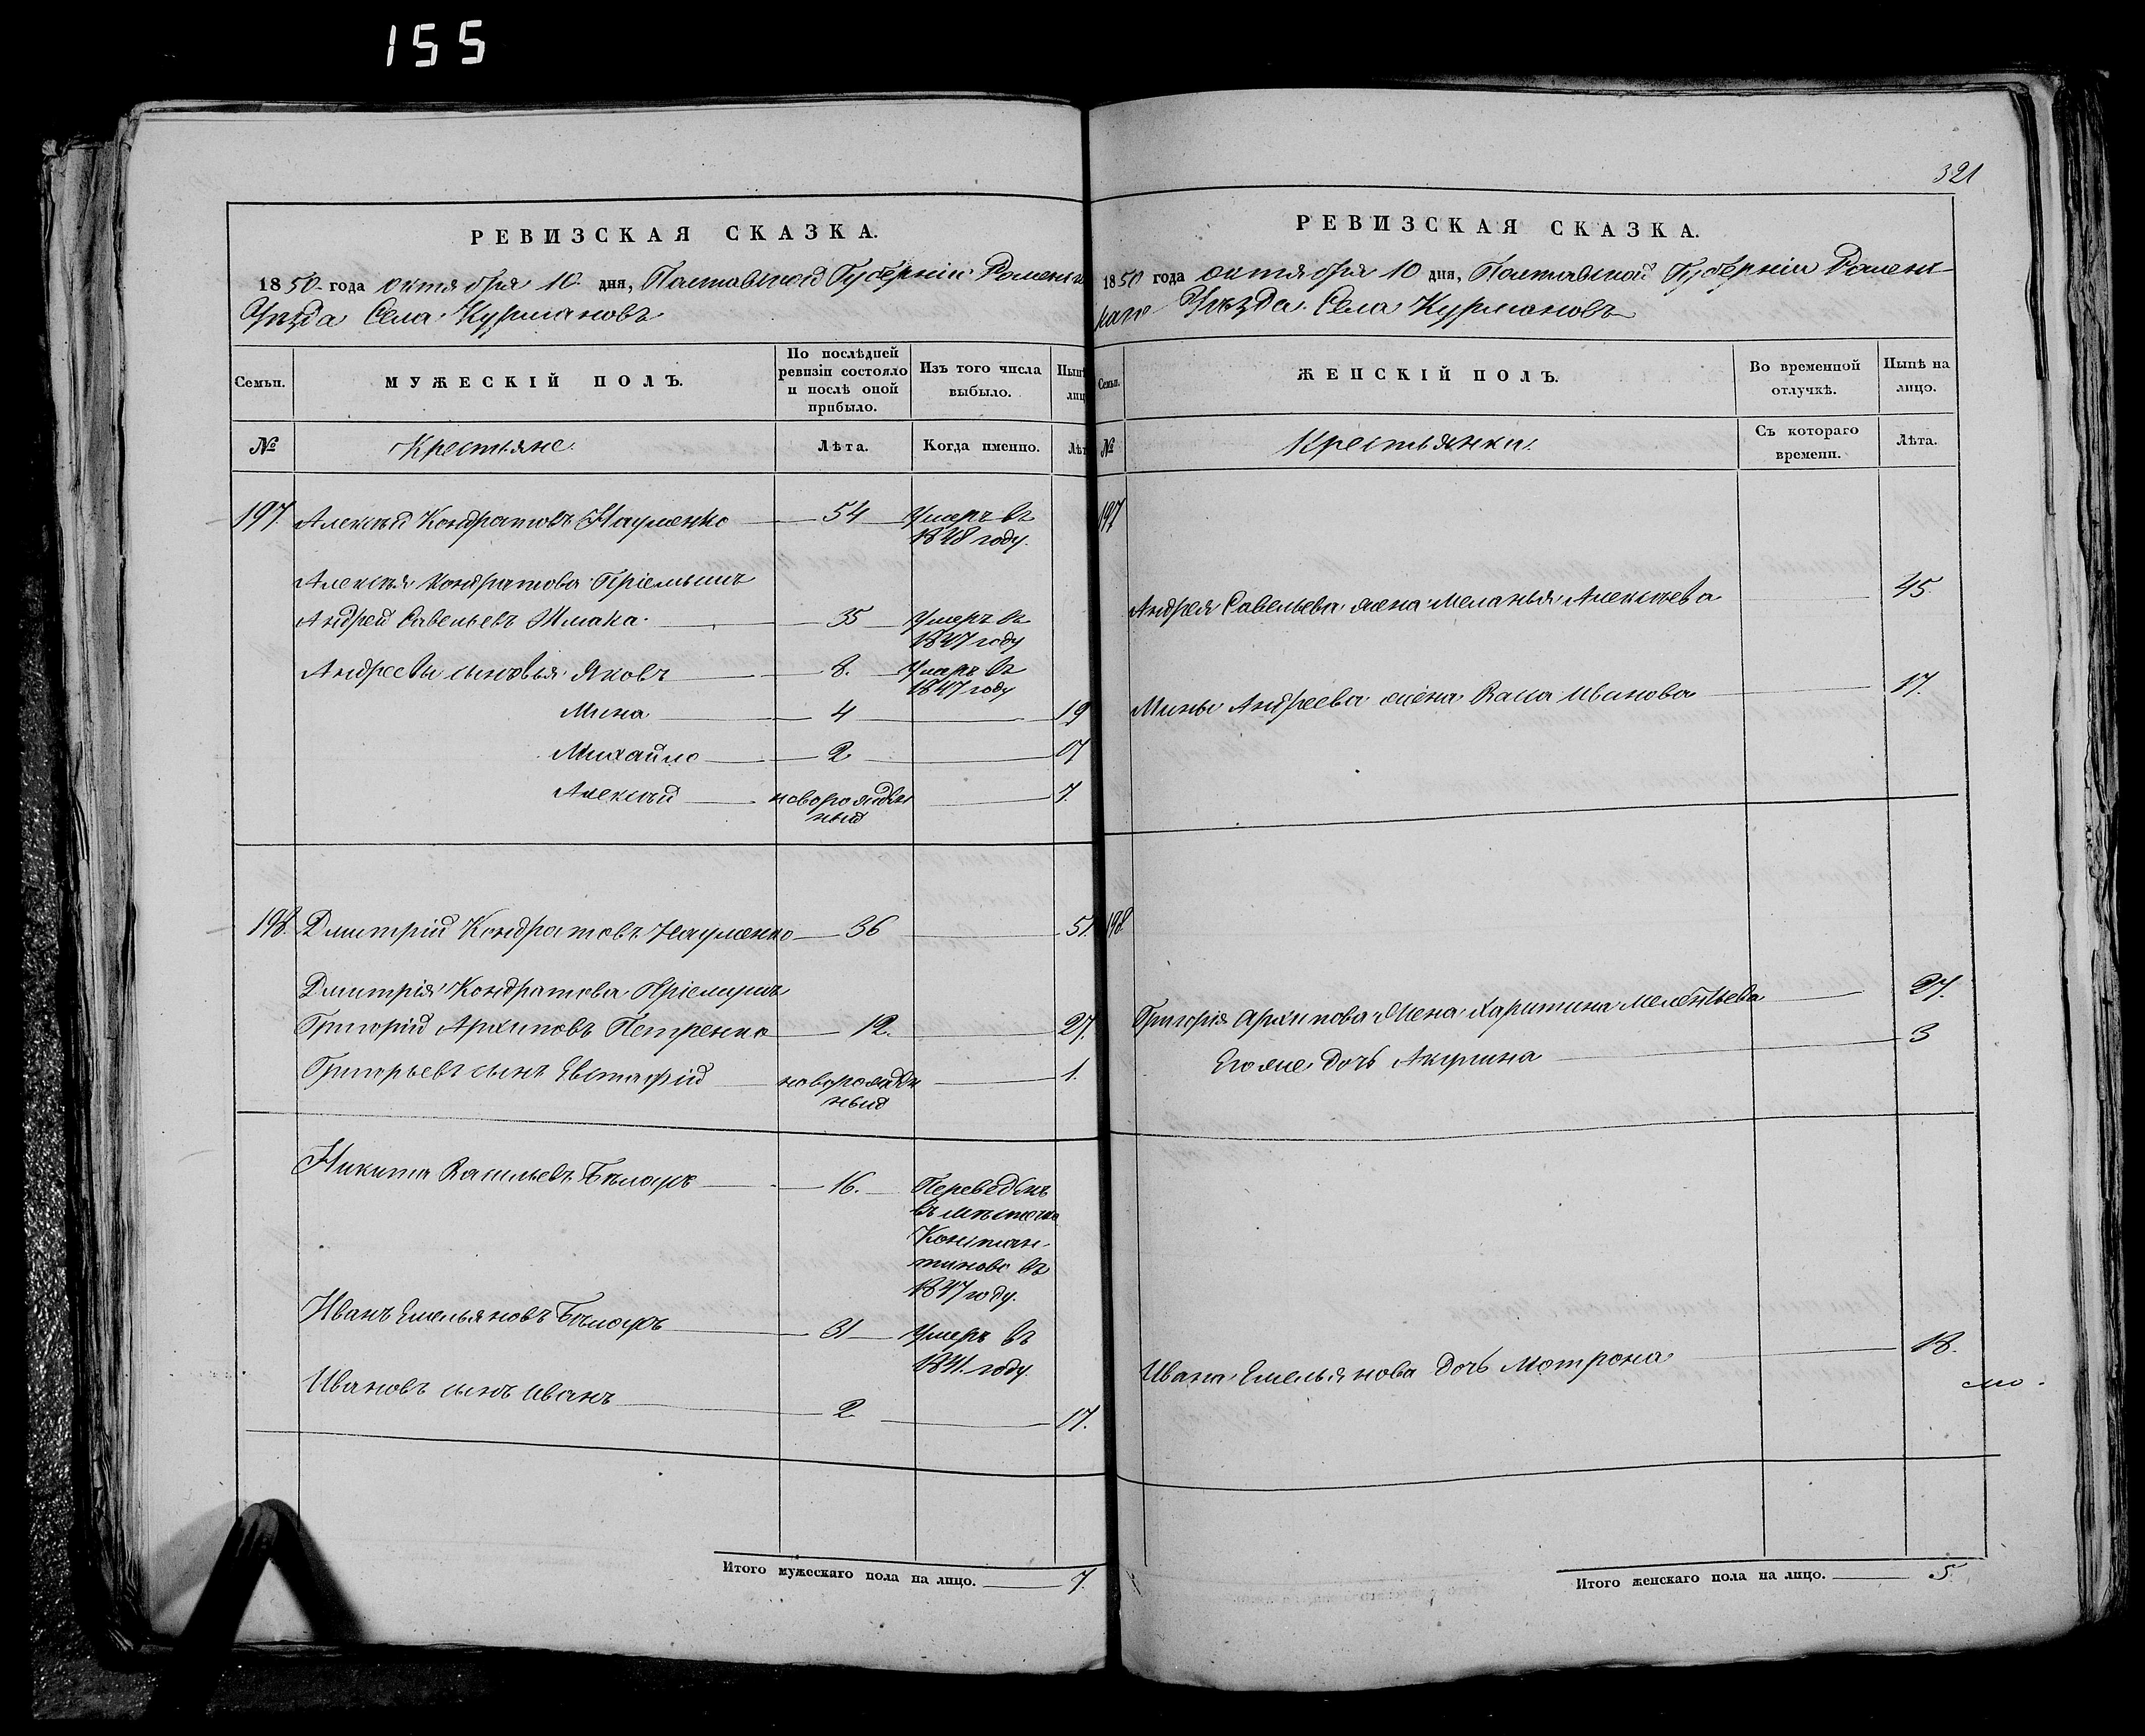 155
РЕВИЗСКАЯ СКАЗКА.
1850 года октября 10 дня, Полтавской Губерніи Роменска
Уѣзда Села Курмановъ
Семьи.
МУЖЕСКІЙ ПОЛЪ.
По послѣдней ревизіи состояло и послѣ оной прибыло.
Изъ того числа выбыло.
№
Крестьяне
Лѣта.
Когда именно.
197. Алексѣй Кондратовъ Науменко 54 Умеръ въ
1848 году.
Алексѣя Кондратова Пріемышъ
Андрей Савельевъ Шмака 35 Умеръ въ
1847 году
Андреевы сыновья Яковъ 8. Умеръ въ
1847 году
Мина 4 19
Михайло 2 17
Алексѣй новорожден 7.
ный
198. Дмитрій Кондратовъ Науменко 36 51.
Дмитрія Кондратова Пріемышъ
Григорій Архиповъ Петренко 12. 27.
Григорьевъ сынъ Евстафій новорожден 1.
ный
Никита Васильевъ 16. Переведенъ
въ мѣстечко
Констан-
тиново въ
1847 году.
Иванъ Емельяновъ 31 Умеръ въ
1841 году.
Ивановъ сынъ Иванъ 2 17.
Итого мужескаго пола на лицо. 7.
321
РЕВИЗСКАЯ СКАЗКА.
1850 года октября 10 дня, Полтавской Губерніи Ромен-
скаго Уѣзда Села Курмановъ
Семьи.
ЖЕНСКІЙ ПОЛЪ.
Во временной отлучкѣ.
Нынѣ на лицо.
№
Крестьянки.
Съ котораго времени.
Лѣта.
197
Андрея Савельева жена Меланья Алексѣева 45.
Мины Андреева жена Васса Иванова 17.
198.
Григорія Архипова жена Харитина Мелентьева 27.
Его же дочь Акулина 3
Ивана Емельянова дочь Мотрона 18.
Итого женскаго пола на лицо. 5.